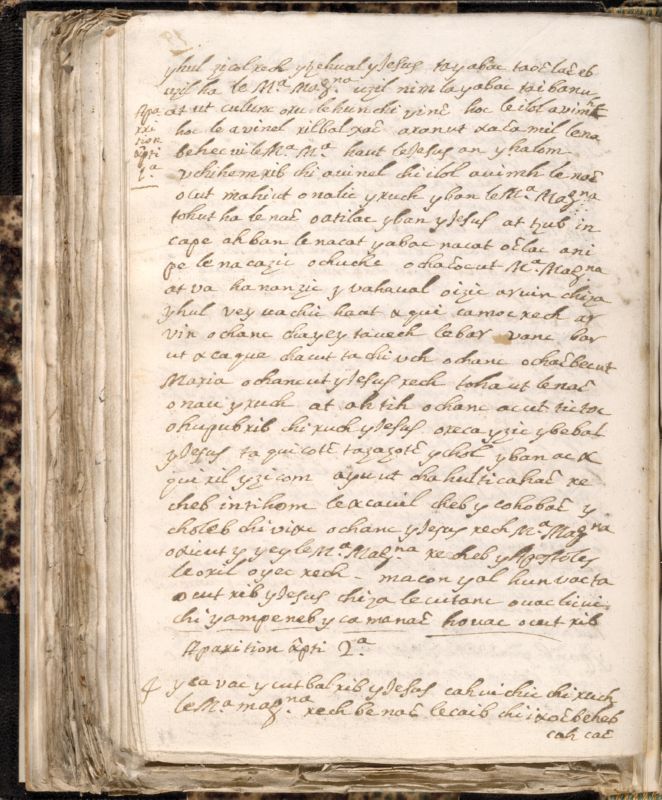 yhul zicolxech yzehual y Jesus ta yabac taoc̃ lac̃ eb
uxil ha le Mª Magna uxil nim la yabac taibanu
at ut culunc oxu le hun chi vinc̃ hoc le ilol avimh
Apa
xxi
tion
xp̃ti
1.ª
hoc le avinel xilbal xac̃ axonut xacamil lena
behec vile Mª. Mª. haut le Jesus an yhalom
vchihem xib chi avinel chi ilol avimh le nac̃
ocut mahiut onalic yxuch yban le Mª Magna
tohut ha le nac̃ oatilac yban y Jesus at tzub in
cape ah ban le nacat yabac nacat oc̃lac ani
pe le nacazic ochuche ochac̃ocut Mª Magna
at va hananzic y vahaual oizic axuin chiza
yhul vey uachic haat x qui camoc xech ax
vin ochanc chayey tavech le bax vanc bax
ut x caque chacut tachi vch ochanc ochac̃ becut
Maxia ochancut y Jesus xech tohaut le nac̃
onau yxuch at ah tih ochanc acut
ohupub xib chi xuch y Jesus oxeca yzic ybebal
y Jesus ta qui cotc̃ tazazotc̃ ychol yban ac x
qui xil yzicom ayu ut cha hulticahac̃ xe
cheb intihom lexcauil cheb y cohobac̃ y
choleb chi vixc ochanc y Jesus xech Mª Magna
oxicut y yey le Mª Magna xecheb y Apostoles
le oxil oyec xech - macon yal hun vacta
ocut xib y Jesus chiza le cutanc ouaclicuic
chi yampeneb y camanac̃ houac ocut xib
Apaxition xp̃ti 2.ª
y ca vac y cutbal xib y Jesus cah vichic chi xuch
le Mª magna. xech be nac̃ le caib chi ixoc̃ beheb
cah cac̃